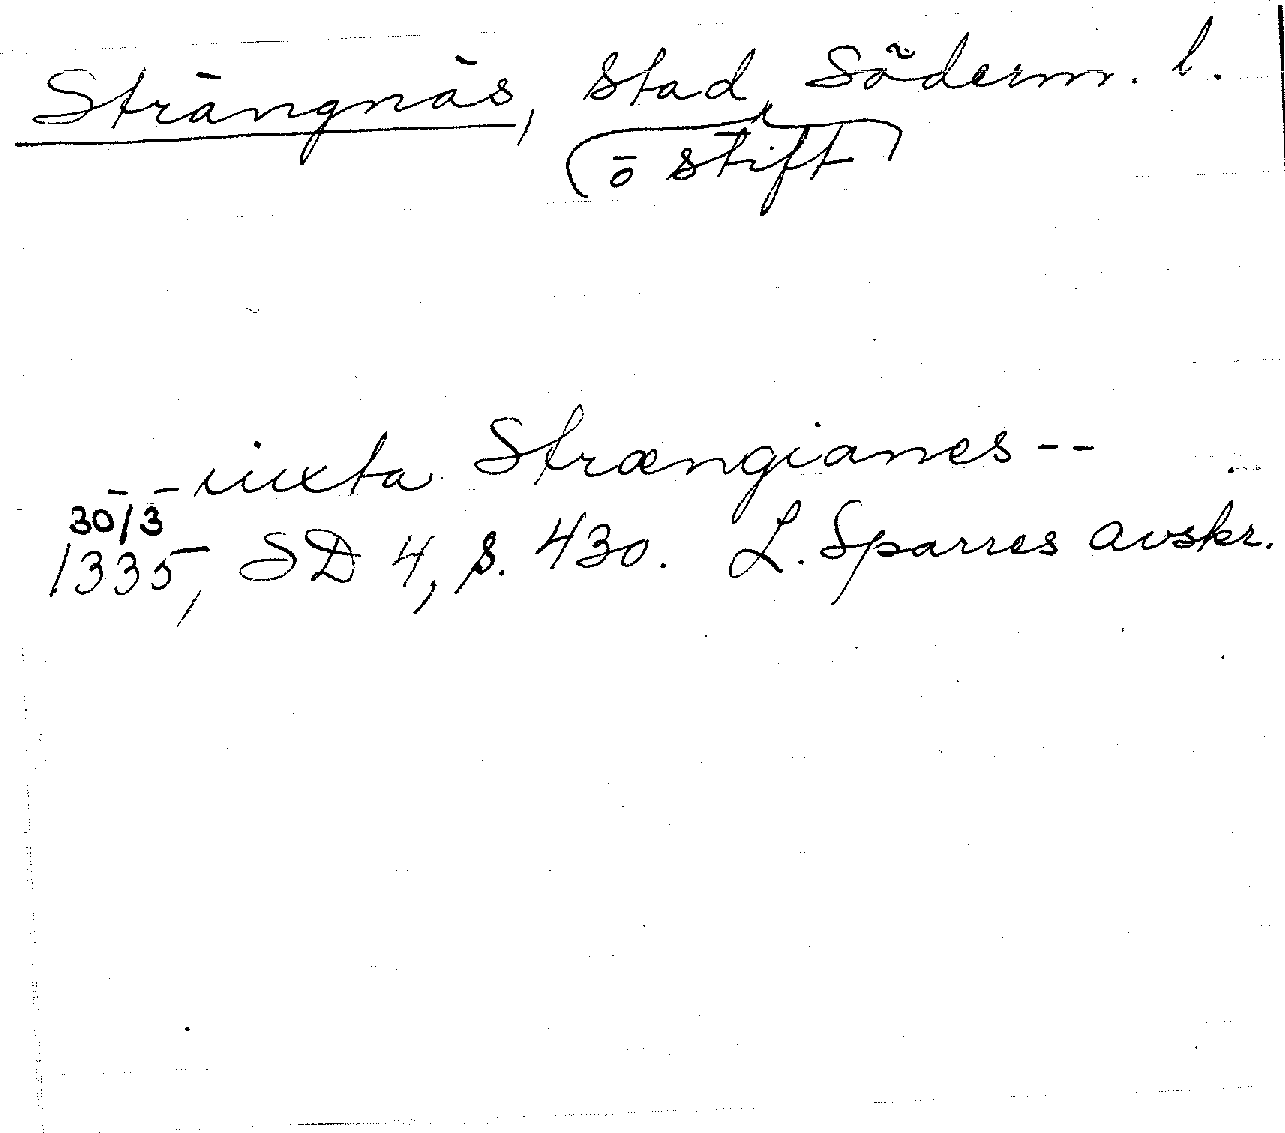 Strängnäs, stad, Söderm. l.
(ō stift)
-- iuxta Strængianes --
30/3
1335, SD 4, s. 430. L. Sparres avskr.